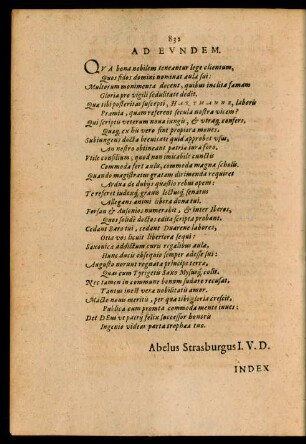 832
AD EVNDEM.
QVA bona nobilem teneantur lege clientum,
Quos fidos domini nominat aula sui:
Multorum monimenta docent, quibus inclita famam
Gloria pro vigili sedulitate dedit.
Qua tibi posteritas suscepti, HARTMANNE, laboris
Præmia, quam referent secula nostra vicem?
Qui scriptis veterum noua iungis, & vtraq; confers,
Quæq; ex his vero sint propiora mones.
Subiungens docta breuitate quid approbet vsus,
An nostro obtineant patria iura foro.
Vtile consilium, quod non imitabile cunctis
Commoda fert aulæ, commoda magna scholæ.
Quando magistratus gratum dirimenda requiret
Ardua de dubijs quæstio rebus opem:
Te referet iudexq; grauis lectusq; senatus
Allegans animi libera dona tui.
Forsan & Ausonios numerabit, & inter Iberos,
Quos solidè doctos edita scripta probant.
Cedant Baro tui, cedant Duarene labores,
Otia vos licuit liberiora sequi:
Saxonicæ addictum iuris regalibus aula,
Hunc ducis obsequio semper adesse sui:
Augusto norunt cognata principe terra,
Quas cum Tyrigetis Saxo Mysusq; colit.
Nec tamen in commune bonum sudare recusat,
Tantus inest vera nobilitatis amor.
Macte noui meritis, per quæ tibi gloria crescit,
Publica cum prompta commoda mente iuues:
Det DEus vt patrij felix successor honoris
Ingenio videat parta trophæa tuo.
Abelus Strasburgus I. V. D.
INDEX